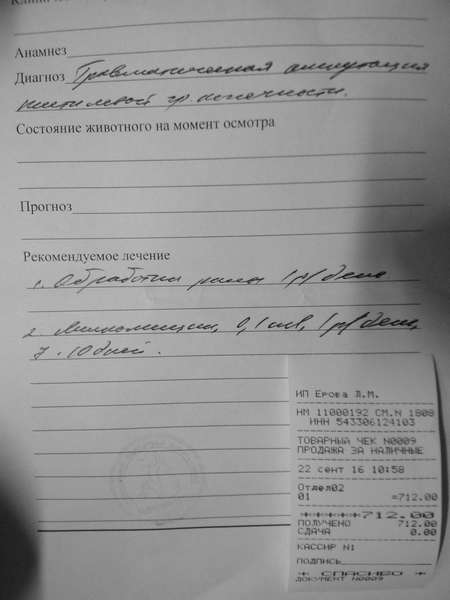 Анамнез
Диагноз Травматическая ампутация
кистилевой гр. конечности.
Состояние животного на момент осмотра
Прогноз
Рекомендуемое лечение
1. Обработки раны 1 р/день
2. Линкомицин, 0,1 мл, 1 р/день,
7-10 дней.
ИП Ерова Л.М.
НМ 11000192 СМ.N 1808
ИНН 543306124103
ТОВАРНЫЙ ЧЕК N0009
ПРОДАЖА ЗА НАЛИЧНЫЕ
22 сент 16 10:58
Отдел02
01 =712.00
*****712.00
ПОЛУЧЕНО 712.00
СДАЧА 0.00
КАССИР N1
ПОДПИСЬ
* СПАСИБО *
ДОКУМЕНТ N0009